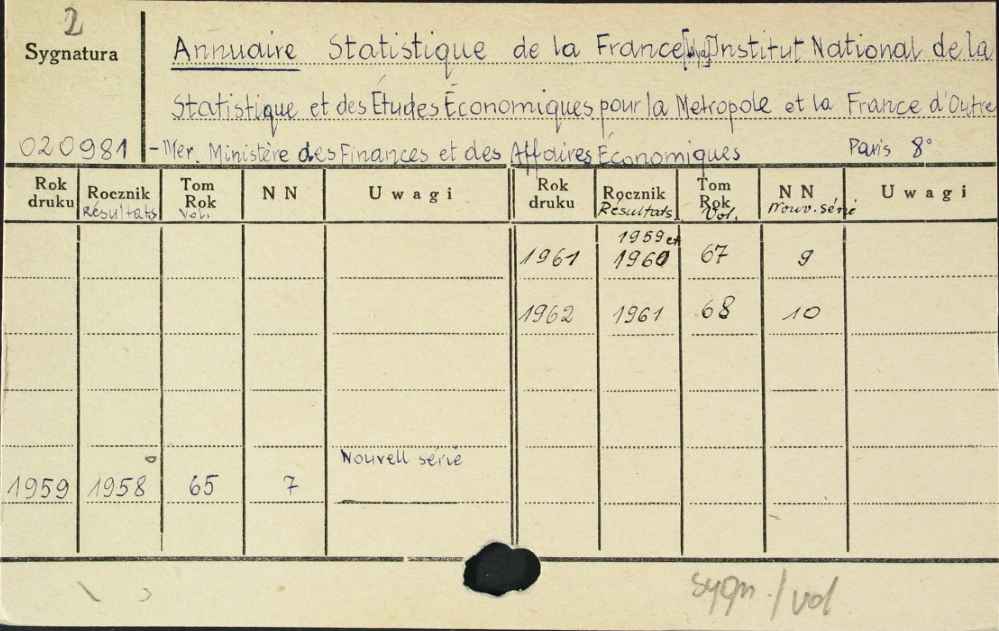 2
Sygnatura
Annuaire Statistique de la France Institut National de la
Statistique et des Études Économiques pour la Metropole et la France d'Outre
020981 - Mer. Ministère des Finances et des Affaires Économiques Paris 8°
Rok druku Rocznik Résultats Tom Rok Vol. N N Uwagi Rok druku Rocznik Résultats Tom Rok Vol. N N Nouv. série Uwagi
1961 1959 et 1960 67 9
1962 1961 68 10
Nouvell série
1959 1958 65 7
sygn. / vol